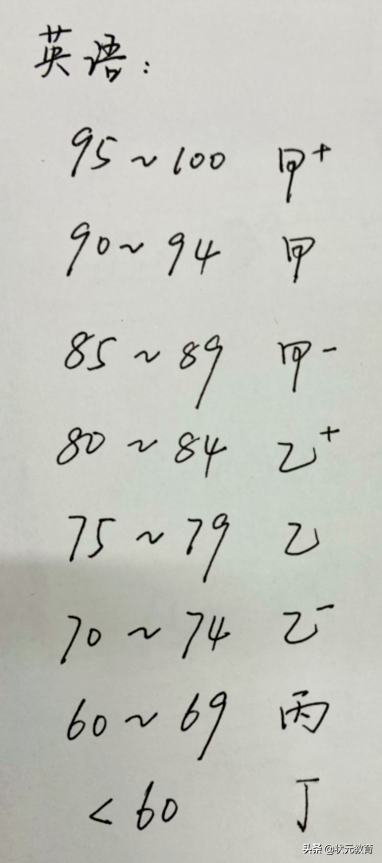 英语：
95～100 甲+
90～94 甲
85～89 甲-
80～84 乙+
75～79 乙
70～74 乙-
60～69 丙
<60 丁
头条 @状元教育